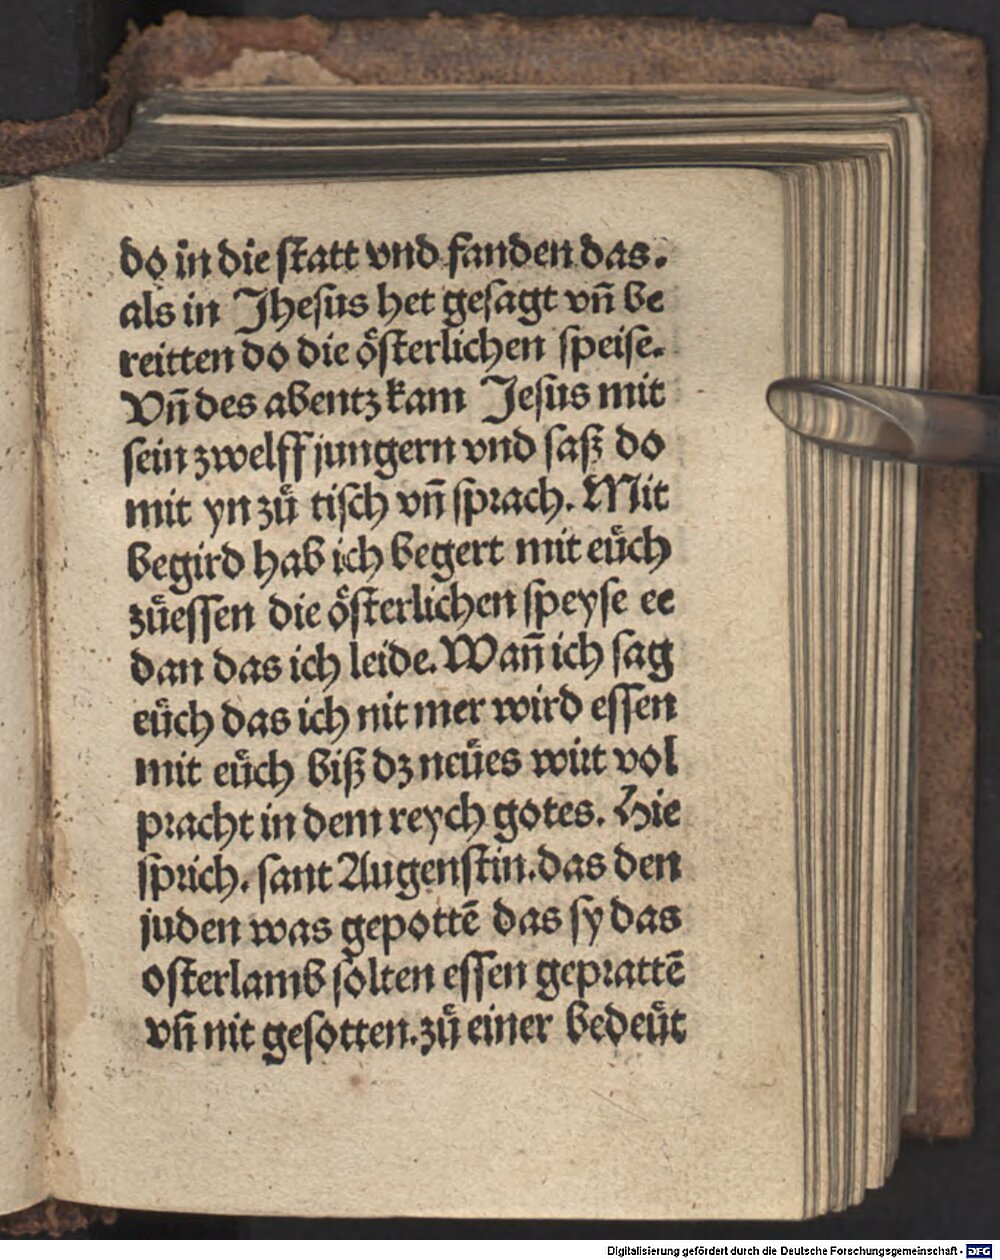 do in die ſtatt vnd fanden das.
als in Jheſus het geſagt vn̄ be
reitten do die oͤſterlichen ſpeiſe.
Vn̄ des abentz kam Jeſus mit
ſein zwelff jungern vnd ſaß do
mit yn zuͤ tiſch vn̄ ſprach. Mit
begird hab ich begert mit euͤch
zuͤeſſen die oͤſterlichen ſpeyſe ee
dan das ich leide. Wan̄ ich ſag
euͤch das ich nit mer wird eſſen
mit euͤch biß dz neuͤes wirt vol
pracht in dem reych gotes. Hie
ſprich. ſant Augenſtin. das den
juden was gepottē das ſy das
oſterlamb ſolten eſſen geprattē
vn̄ nit geſotten. zuͤ einer bedeuͤt
Digitalisierung gefördert durch die Deutsche Forschungsgemeinschaft - DFG